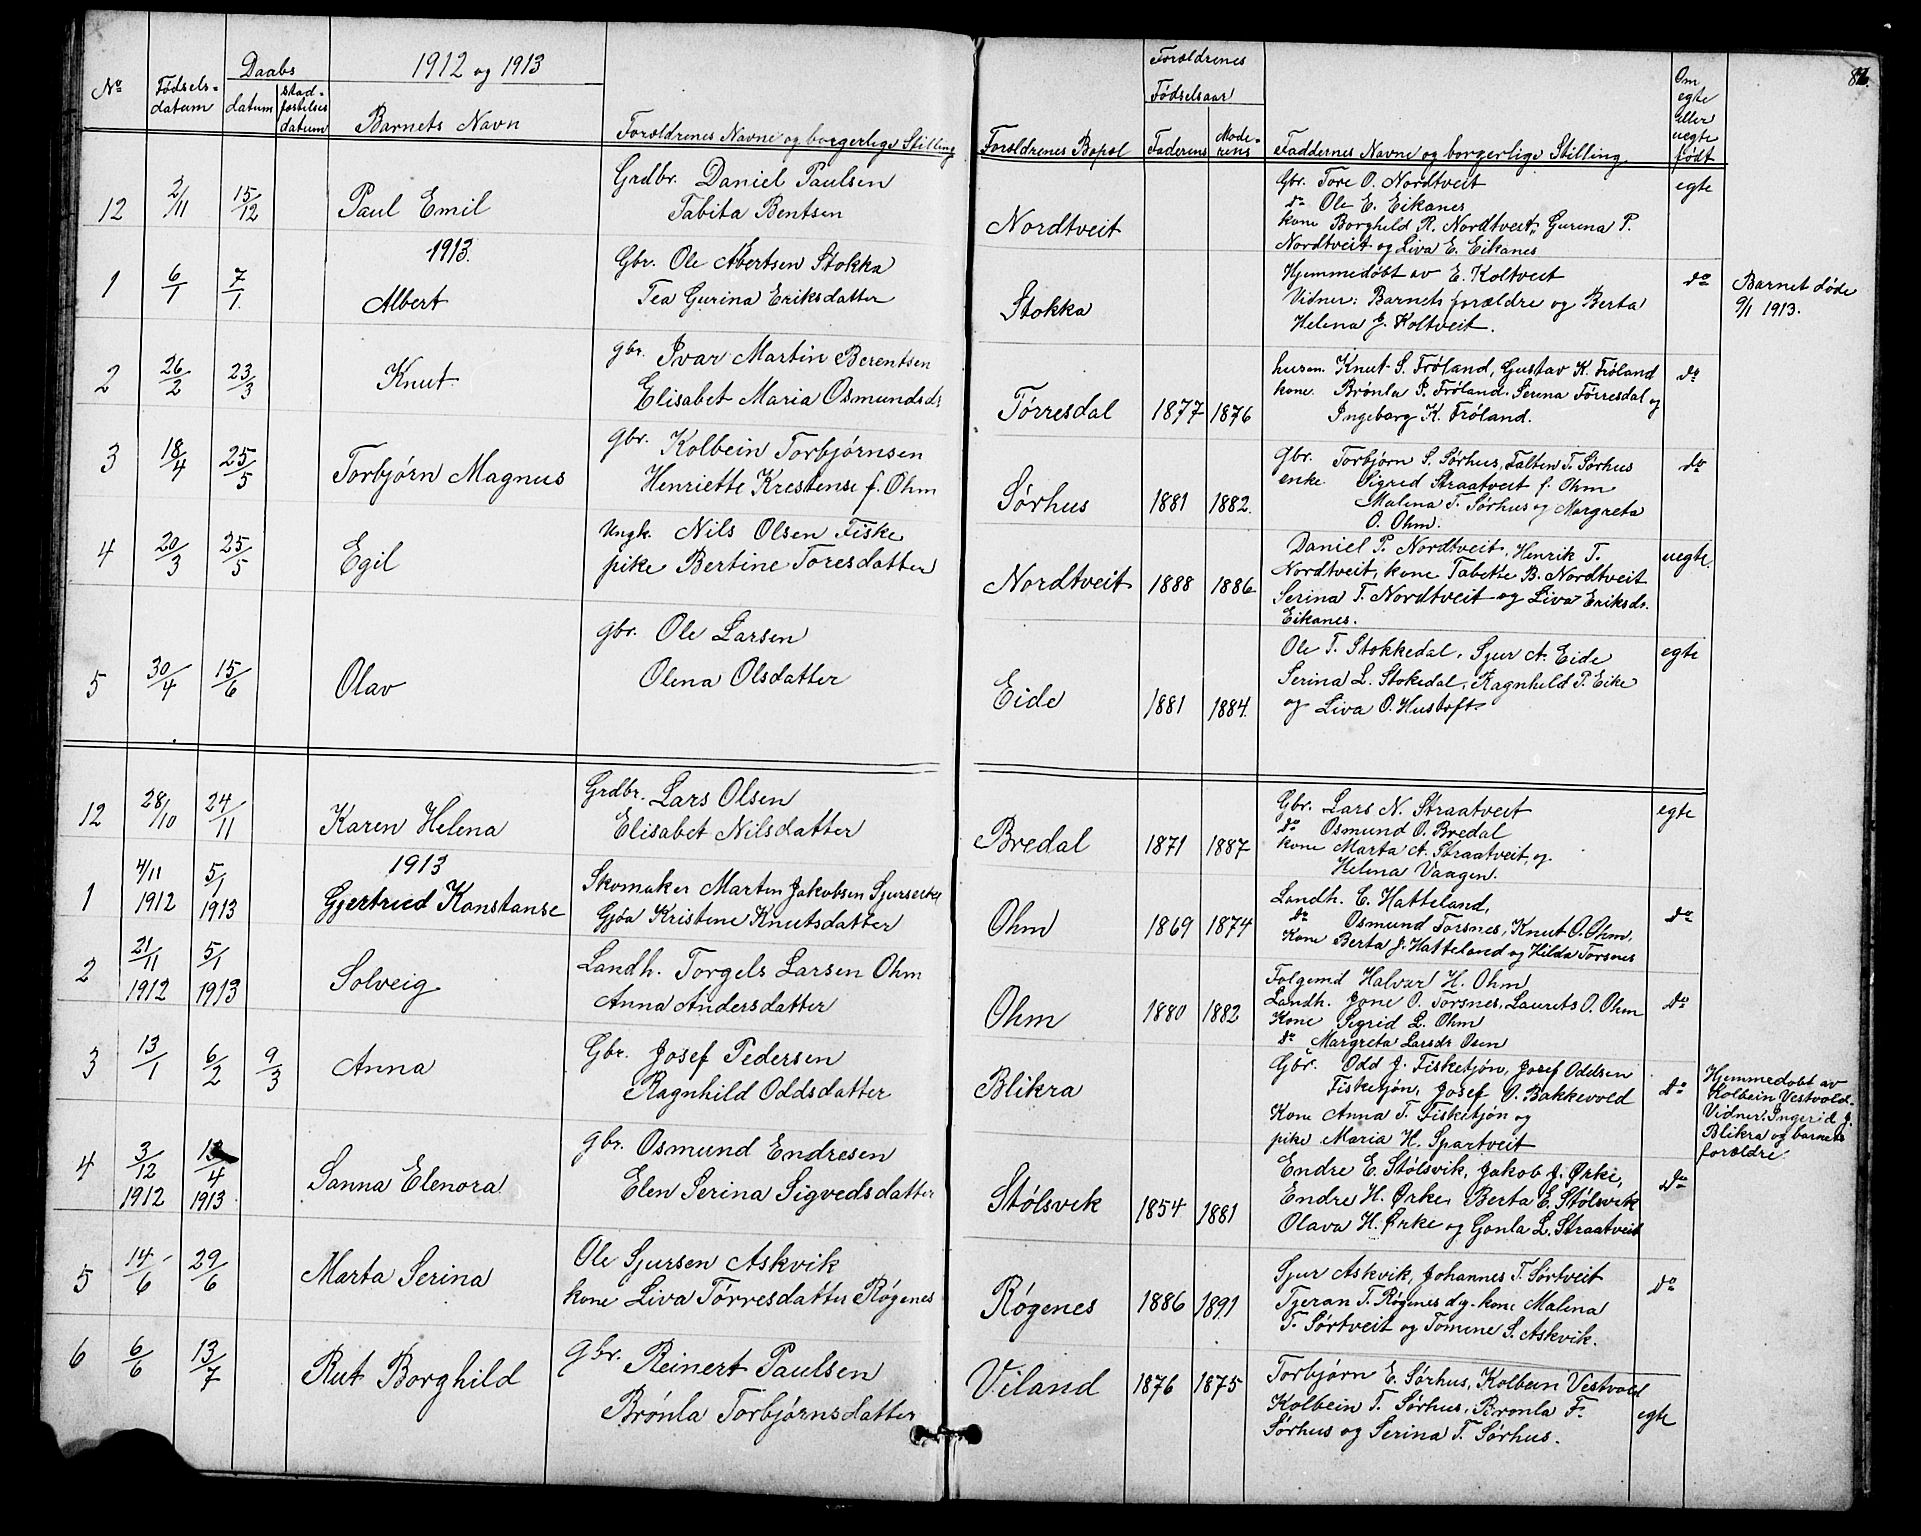 82.
1912 og 1913
No
Fødsels-
datum
Daabs
datum
stad-
festelses
datum
Barnets Navn
Forældrenes Navne og borgerlige Stilling
Forældrenes Bopæl
Forældrenes
Fødselsaar
Faderens
Mode-
rens
Faddernes Navne og borgerlige Stilling
Om
egte
eller
uegte
født
12 2/11 15/12 Paul Emil
Grdbr. Daniel Paulsen
Tabita Bentsen
Nordtveit
Gbr. Tore O. Nordtveit
do Ole E. Eikanes
kone Borghild R. Nordtveit, Gurina P.
Nordtveit og Liva E. Eikanes
egte
1913.
1 6/1 7/1. Albert
Gbr. Ole Abertsen Stokka
Tea Gurina Eriksdatter
Stokka
Hjemmedøbt av E. Koltveit
Vidner: Barnets forældre og Berta
Helena E. Koltveit.
do
Barnet døde
9/1 1913.
2 26/2 23/3 Knut
gbr. Ivar Martin Berentsen
Elisabet Maria Osmundsdr
Tørresdal 1877 1876
husm. Knut S. Frøland, Gustav K. Frøland
kone Brønla P. Frøland. Serina Tørresdal og
Ingeborg K. Frøland.
do
3 18/4 25/5 Torbjørn Magnus
gbr. Kolbein Torbjørnsen
Henriette Krestense f. Ohm
Sørhus 1881 1882.
gbr. Torbjørn S. Sørhus, Falten T. Sørhus
enke Sigrid Straatveit f. Ohm
Malena T. Sørhus og Margreta
O. Ohm.
do
4 20/3 25/5 Egil
Ungk. Nils Olsen Fiske
pike Bertine Toresdatter
Nordtveit 1888 1886
Daniel P. Nordtveit, Henrik T.
Nordtveit, kone Tabette B. Nordtveit
Serina T. Nordtveit og Liva Eriksdr.
Eikanes.
uegte.
5 30/4 15/6 Olav
gbr. Ole Larsen
Olena Olsdatter
Eide 1881 1884.
Ole T. Stokkedal, Sjur A. Eide
Serina L. Stokedal, Ragnhild P. Eike
og Liva O. Hustoft.
egte
12 28/10 24/11 Karen Helena
Grdbr. Lars Olsen
Elisabet Nilsdatter
Bredal 1871 1887
Gbr. Lars N. Straatveit
do Osmund O. Bredal
kone Marta A. Straatveit og
Helena Vaagen.
egte
1913
1 4/11 1912 5/1 1913 Gjertried Konstanse
Skomaker Marten Jakobsen
Gjøa Kristene Knutsdatter
Ohm 1869 1874
Landh. E. Hatteland,
do Osmund Torsnes, Knut O. Ohm,
Kone Berta J. Hatteland og Hilda Torsnes
do
2 21/11 1912 5/1 1913 Solveig
Landh. Torgels Larsen Ohm
Anna Andersdatter
Ohm 1880 1882
Folgemd Halvar H. Ohm
Landh. Jone O. Torsnes, Laurets O. Ohm
Kone Segrid L. Ohm
do Margreta Larsdr Osen
do
3 13/1 6/2 9/3 Anna
Gbr. Josef Pedersen
Ragnhild Oddsdatter
Blikra
Gbr. Odd J. Fisketjøn, Josef Oddsen
Fisketjøn, Josef O. Bakkevold
Kone Anna T. Fisketjøn og
pike Maria H. Spartveit
do
Hjemmedøbt av
Kolbein Vestvold.
Vidner: Ingerid J.
Blikra og barnets
forældre
4 3/12 1912 13/4 1913. Sanna Elenora
gbr. Osmund Endresen
Elen Serina Sigvedsdatter
Stølsvik 1854 1881
Endre E. Stølsvik, Jakob J. Ørke,
Endre H. Ørke, Berta E. Stølsvik
Olava H. Ørke og Gonla L. Straatveit
do
5 14/6 29/6 Marta Serina
Ole Sjursen Askvik
kone Liva Tørresdatter Røgenes
Røgenes 1886 1891
Sjur Askvik, Johannes T. Sørtveit
Tjeran T. Røgenes d.y. kone Malena
T. Sørtveit og Tomine S. Askvik.
do
6 6/6 13/7 Rut Borghild
gbr. Reinert Paulsen
Brønla Torbjørnsdatter
Veland 1876 1875
Torbjørn E. Sørhus, Kolbein Vestvold
Kolbein T. Sørhus, Bronla T.
Sørhus og Serina T. Sørhus.
egte